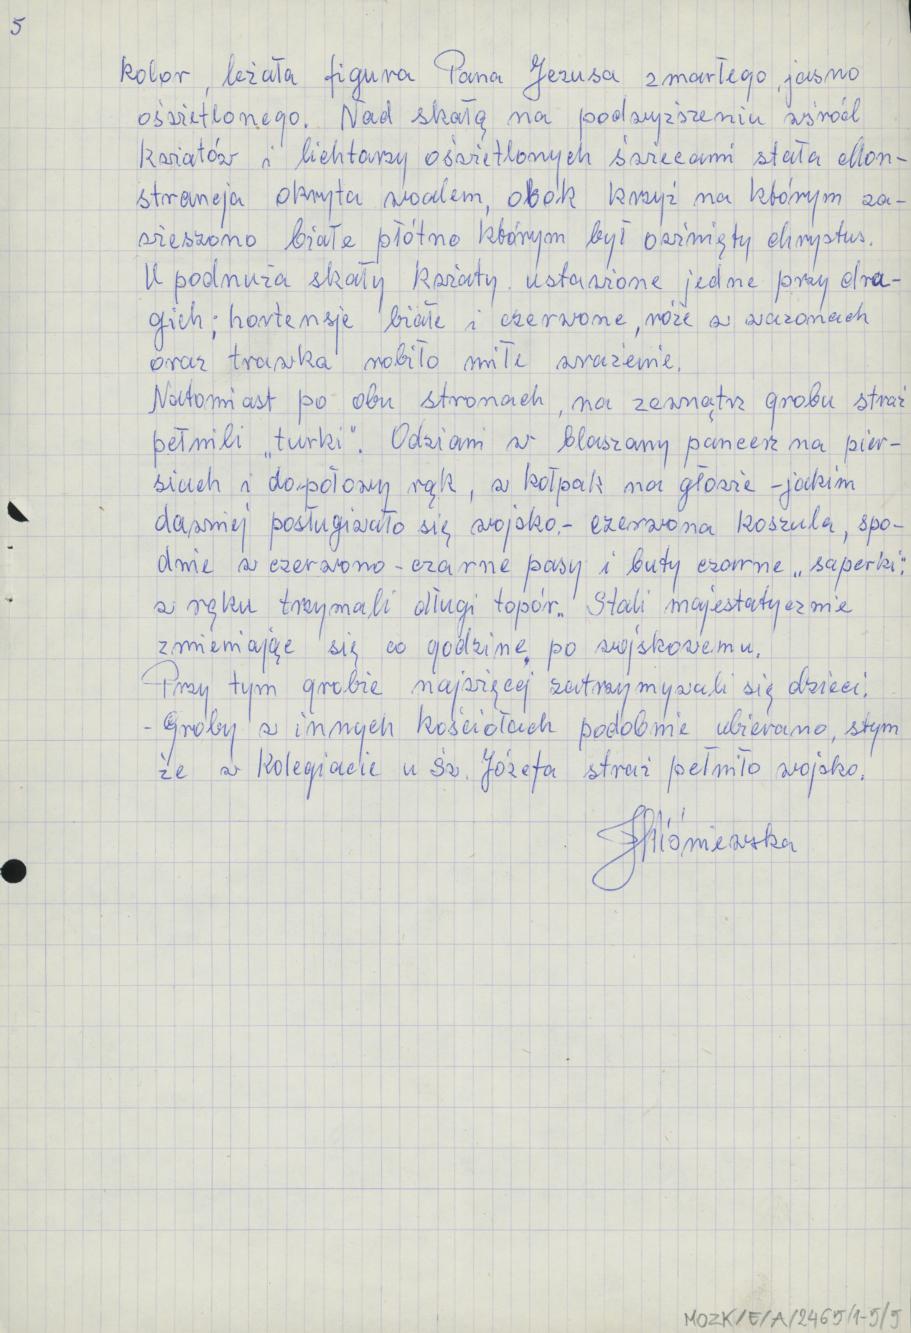 5
kolor, leżała figura Pana Jezusa zmarłego, jasno
oświetlonego. Nad skałą na podwyższeniu wśród
kwiatów i lichtarzy oświetlonych świecami stała Mon-
strancja okryta woalem, obok krzyż na którym za-
wieszono białe płótno którym był owinięty chrystus.
U podnuża skały kwiaty ustawione jedne przy dru-
gich; hortensje białe i czerwone, róże w wazonach
oraz trawka robiło miłe wrażenie.
Natomiast po obu stronach, na zewnątrz grobu straż
pełnili „turki". Odziani w blaszany pancerz na pier-
siach i do połowy rąk, w kołpak na głowie - jakim
dawniej posługiwało się wojsko. - czerwona koszula, spo-
dnie w czerwono - czarne pasy i buty czarne „saperki".
w ręku trzymali długi topór. Stali majestatycznie
zmieniając się co godzinę, po wojskowemu.
Przy tym grobie najwięcej zatrzymywali się dzieci.
- Groby w innych kościołach podobnie ubierano, stym
że w Kolegiacie u Św. Józefa straż pełniło wojsko.
MOZK/E/A/2465/1-5/5